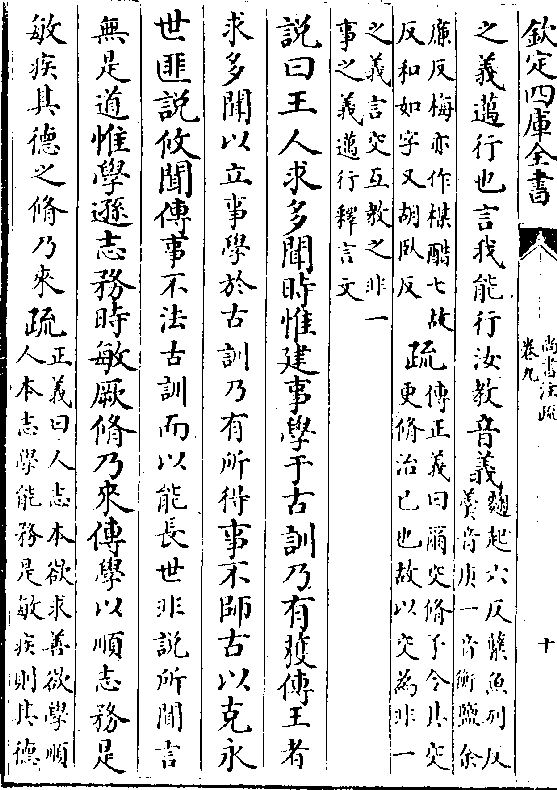 欽定四庫全書
尚書注疏
卷九
十
之義邁行也言我能行汝教音義麴起六反糵魚列反
羹音庚一音衡鹽余
廉反梅亦作楳醋七故
反和如字又胡臥反
疏傳正義曰爾交脩予令其交
更脩治己也故以交為非一
之義言交互教之非一
事之義邁行釋言文
說曰王人求多聞時惟建事學于古訓乃有獲傳王者
求多聞以立事學於古訓乃有所得事不師古以克永
世匪說攸聞傳事不法古訓而以能長世非說所聞言
無是道惟學遜志務時敏厥脩乃來傳學以順志務是
敏疾其德之脩乃來疏正義曰人志本欲求善欲學順
人本志學能務是敏疾則其德